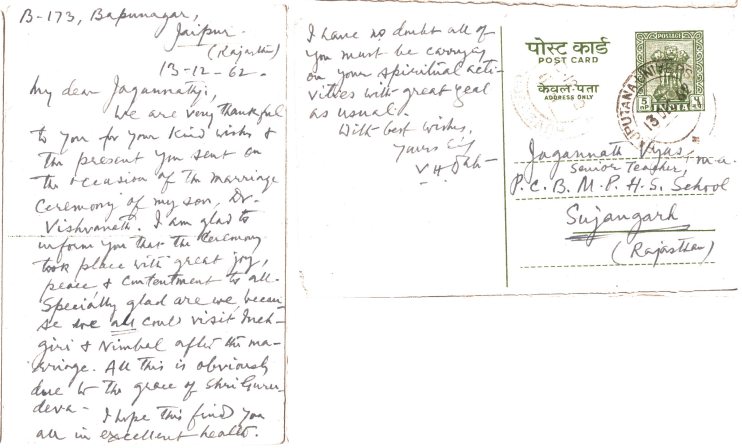 B-173, Bapunagar,
Jaipur.
(Rajasthan)
13-12-62.
My dear Jagannathji,
We are very thankful
to you for your kind wishes &
the present you sent on
the occasion of the marriage
ceremony of my son, Dr.
Vishvanath. I am glad to
inform you that the ceremony
took place with great joy,
peace & contentment to all.
Specially glad are we, becau-
se we all could visit Inch-
giri & Nimbal after the ma-
rriage. All this is obviously
due to the grace of Shri Guru-
deva - I hope this finds you
all in excellent health.
I have no doubt all of
you must be carrying
on your spiritual acti-
vities with great zeal
as usual.
With best wishes,
Yours
V H Date
पोस्ट कार्ड
POST CARD
केवल पता
ADDRESS ONLY
POSTAGE
INDIA
RAJPUTANA UNIVERSITY
Jagannath Vyas, M.A.
Senior Teacher,
P.C.B.M.P.H.S. School
Sujangarh
(Rajasthan)